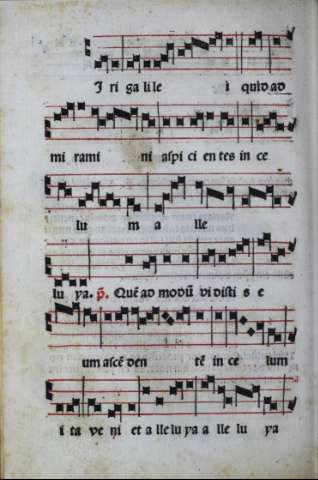 J ri ga li le i quid ad
mi rami ni aspi ci en tes in ce
lu m a lle
lu ya. p̄. Quē ad modū vi disti s e
um ascē den tē in ce lum
i ta ve ni et a lle lu ya a lle lu ya